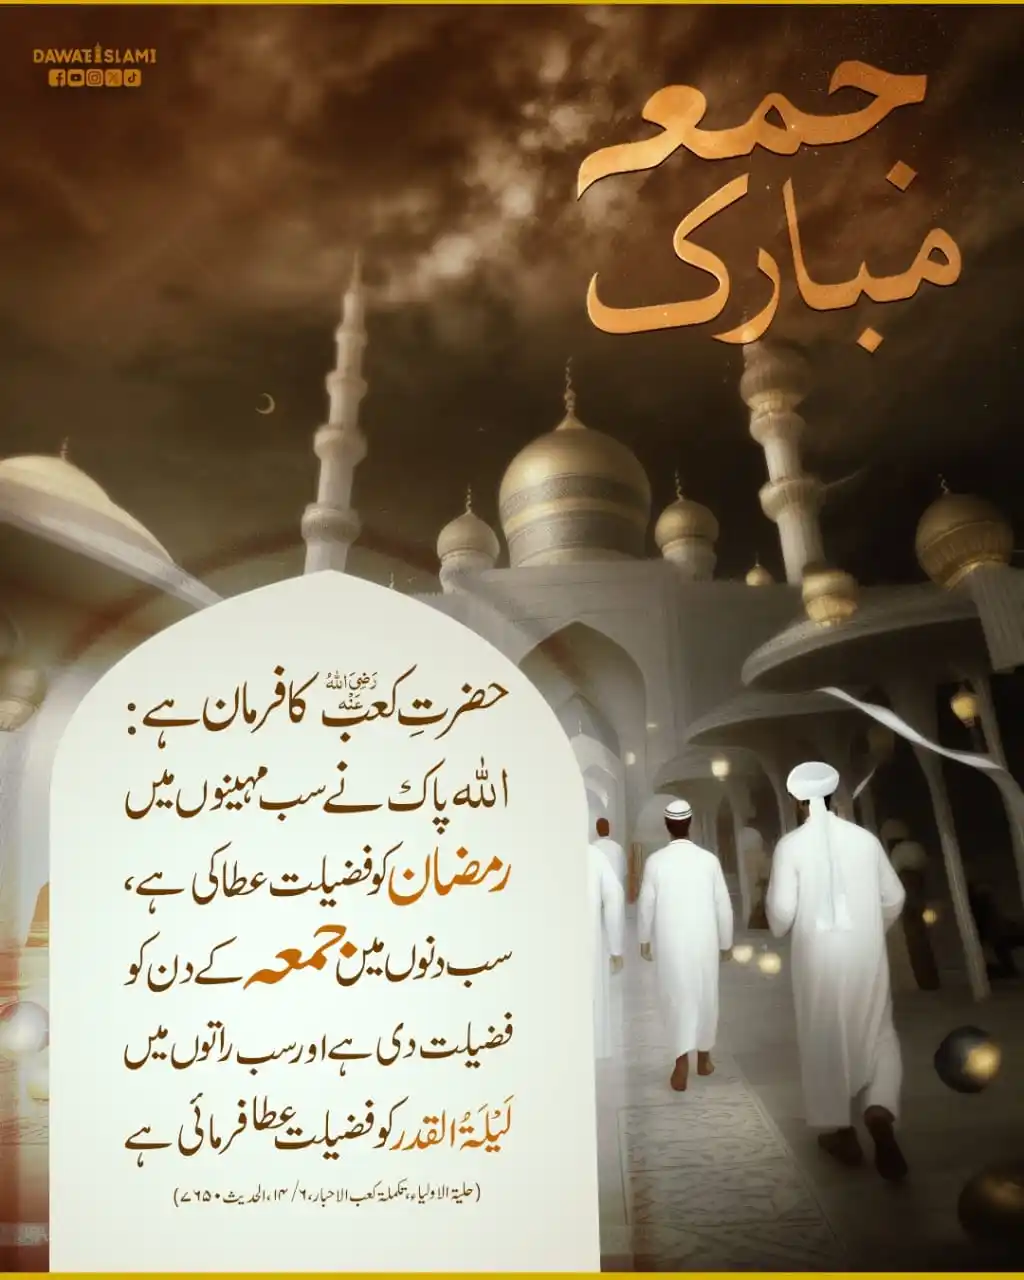 DAWATEISLAMI
جمعہ
مبارک
حضرتِ کعب رَضِیَ اللهُ عَنْه کا فرمان ہے:
اللہ پاک نے سب مہینوں میں
رمضان کو فضیلت عطا کی ہے،
سب دنوں میں جمعہ کے دن کو
فضیلت دی ہے اور سب راتوں میں
لَیْلَۃُ القدر کو فضیلت عطا فرمائی ہے
(حلیۃ الاولیاء، تکملۃ کعب الاحبار، ۶/ ۱۴، الحدیث ۷۶۵۰)